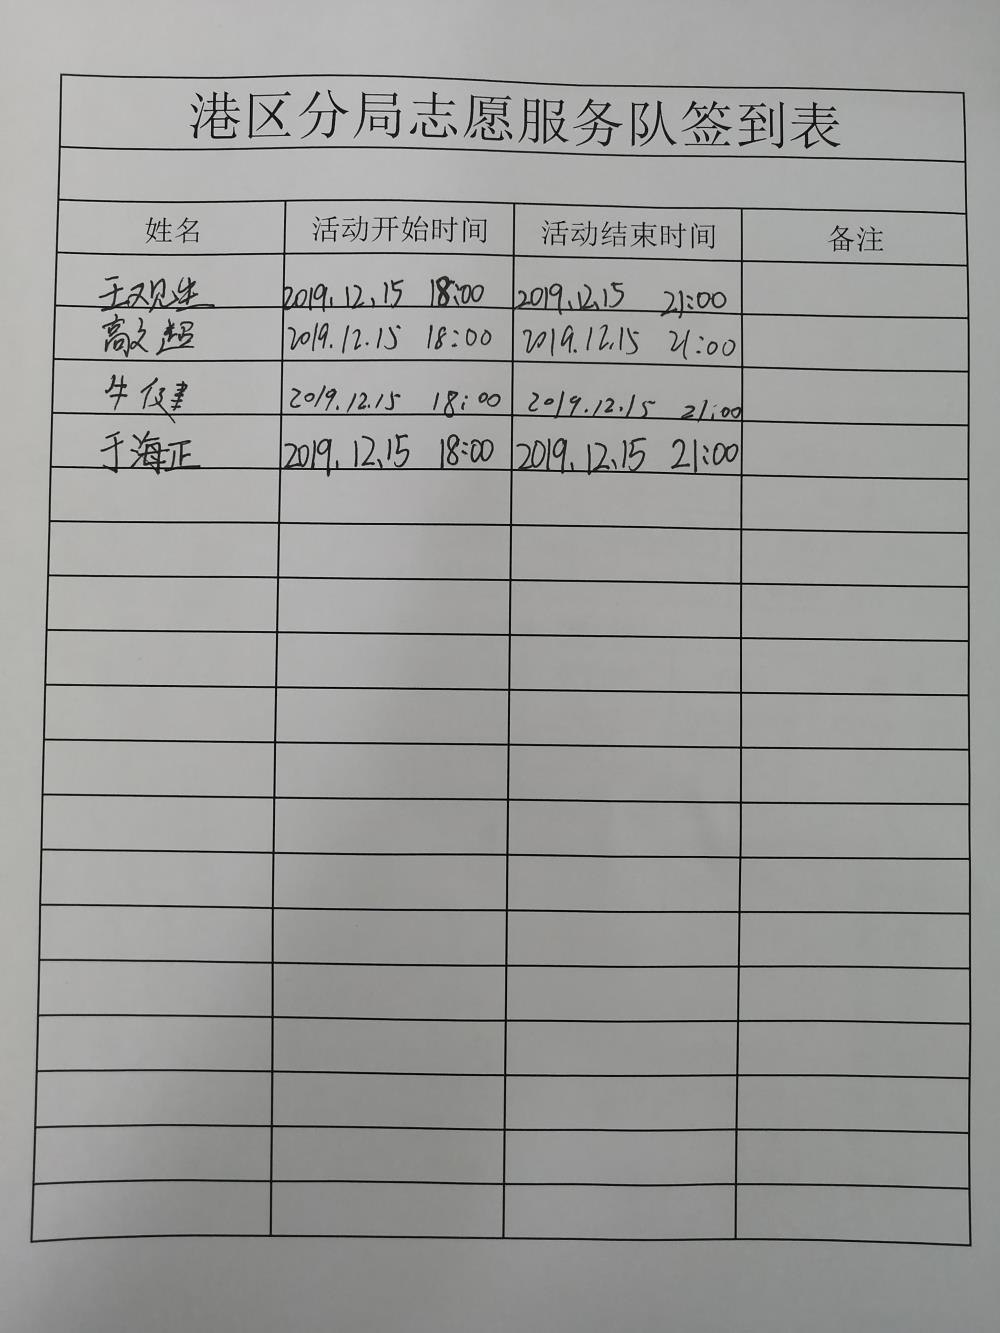 港区分局志愿服务队签到表
姓名 活动开始时间 活动结束时间 备注
王观生 2019.12.15 18:00 2019.12.15 21:00
高文超 2019.12.15 18:00 2019.12.15 21:00
牛健 2019.12.15 18:00 2019.12.15 21:00
于海正 2019.12.15 18:00 2019.12.15 21:00